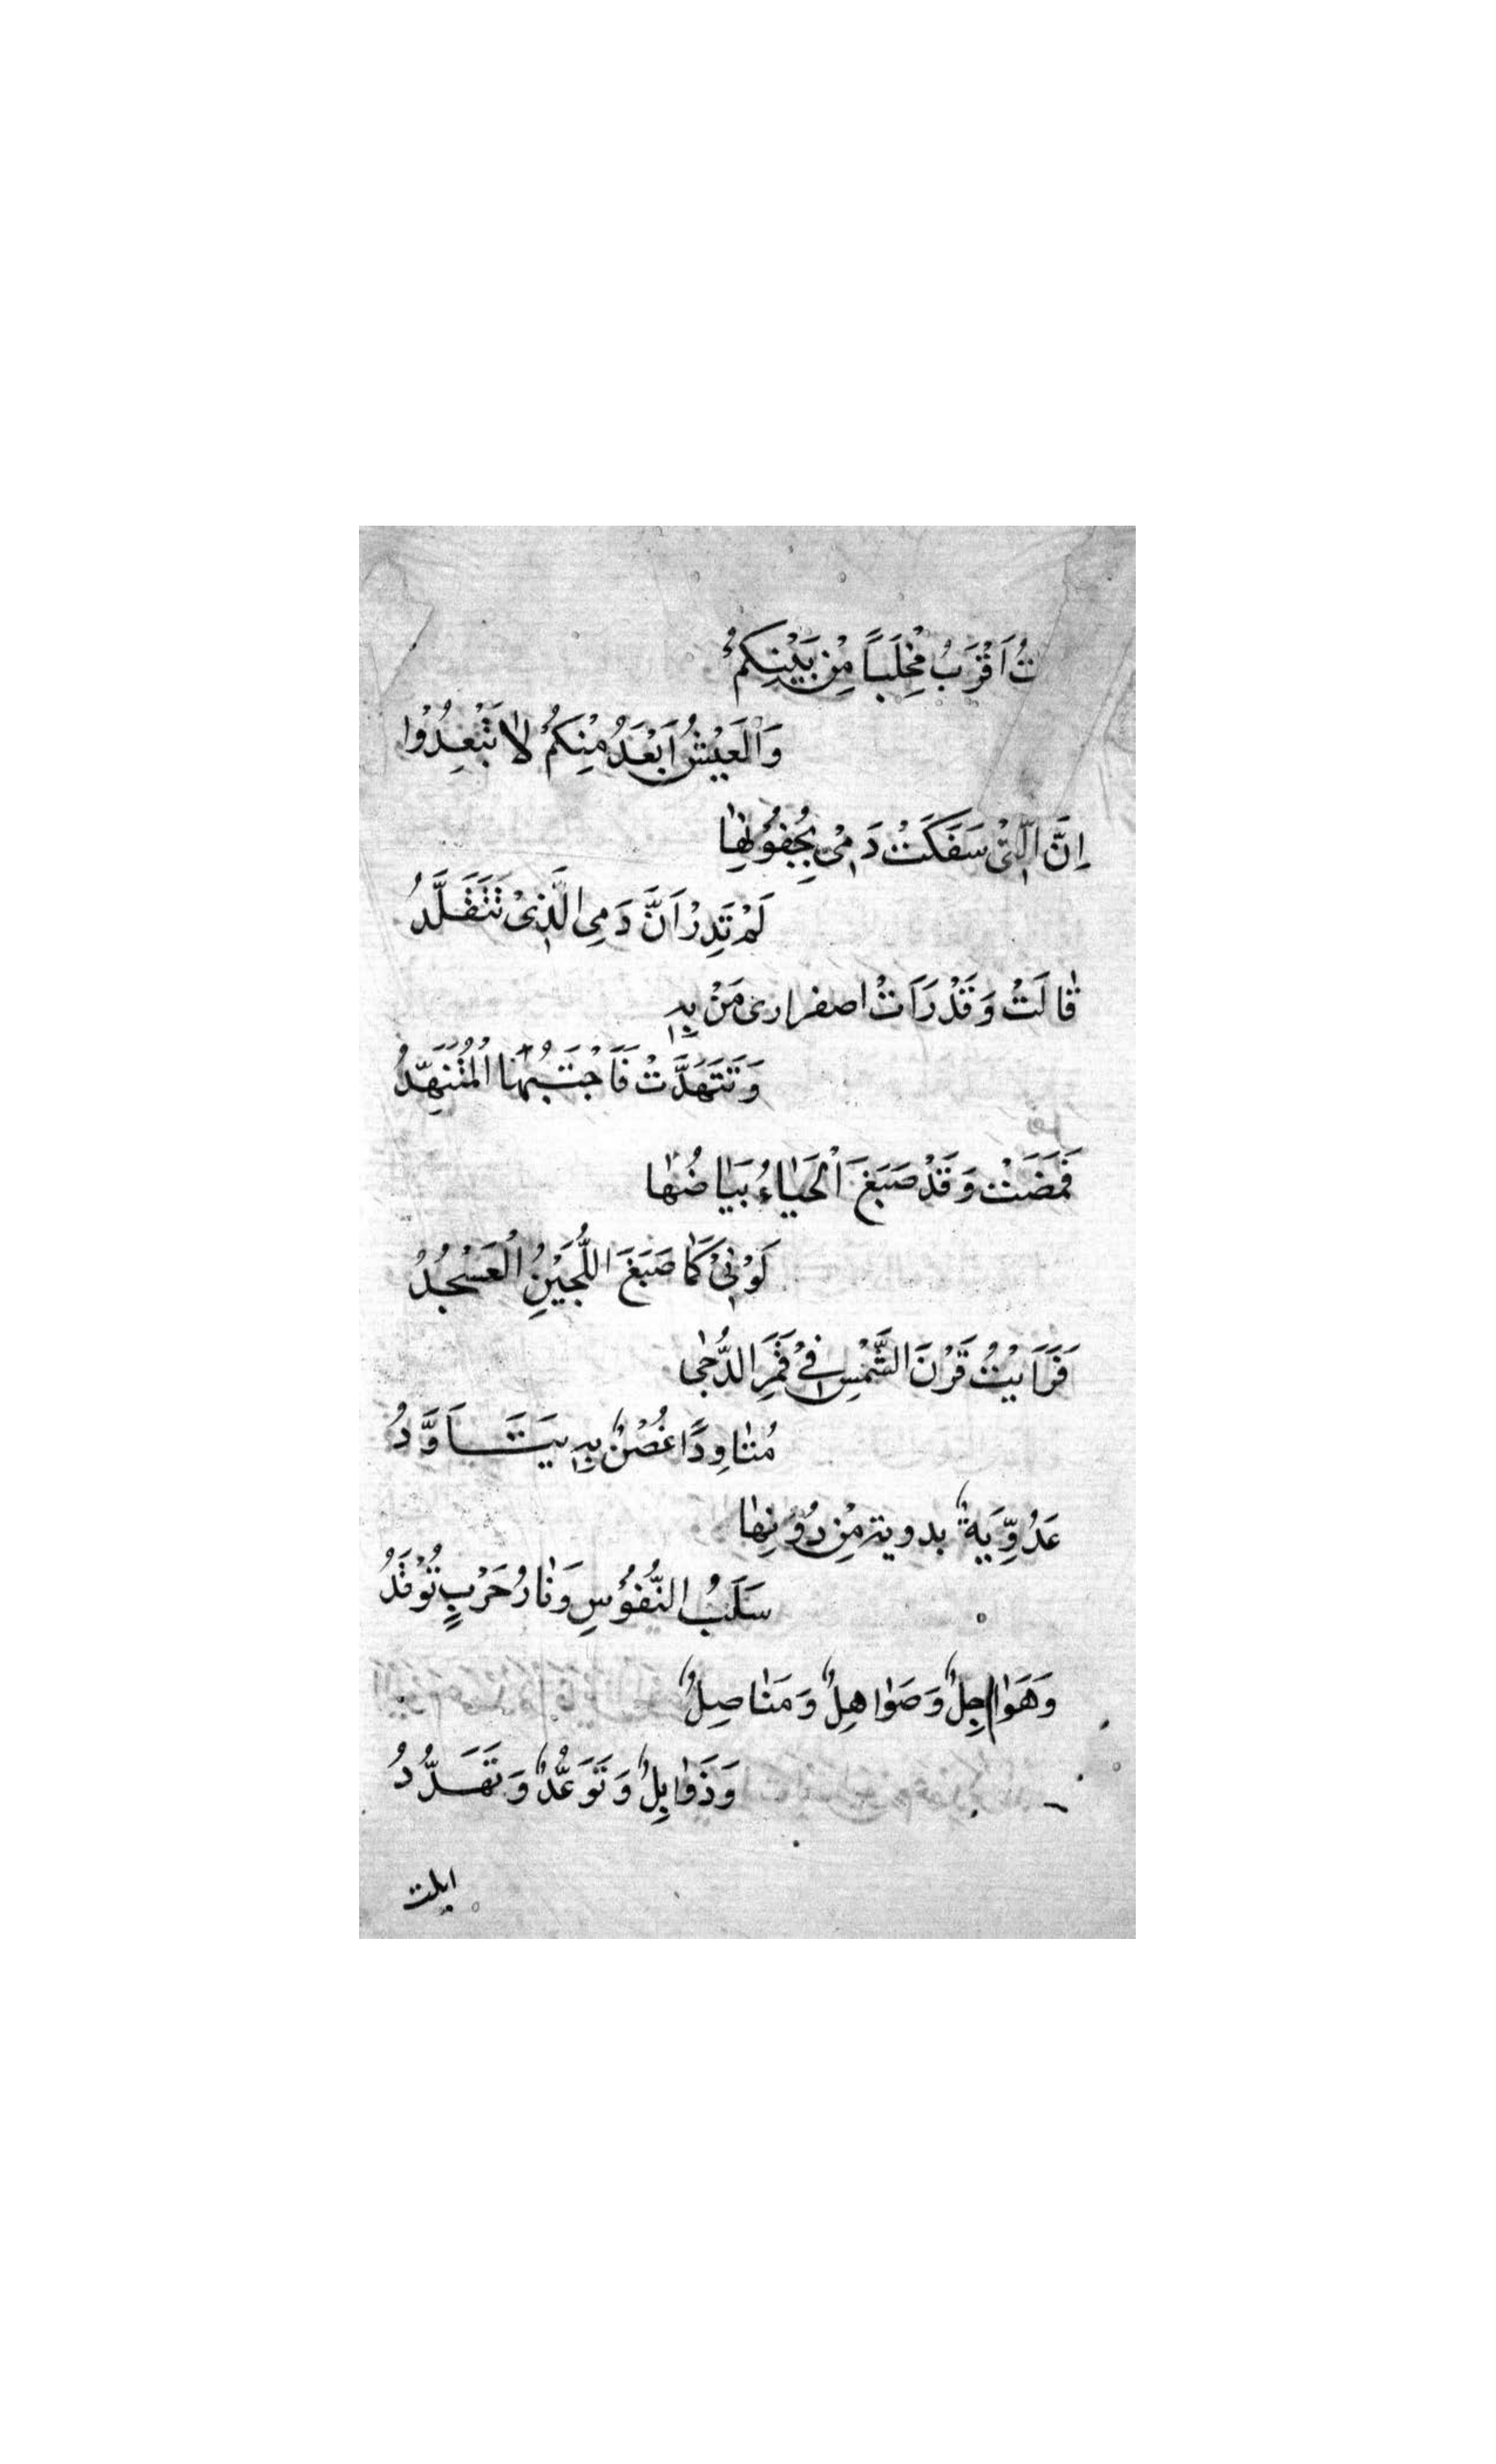 اَقْرَبُ مِخْلَباً مِنْ بَيْنِكُمْ
وَالْعَيْشُ اَبْعَدُ مِنْكُمْ لَا تَبْعِدُوْا
اِنَّ الَّتِىْ سَفَكَتْ دَمِىْ بِجُفُوْنِهَا
لَمْ تَدِرْ اَنَّ دَمِى الَّذِىْ تَتَقَلَّدُ
قَالَتْ وَقَدْ رَاَتْ اصفرارى مَنْ بِهِ
وَتَنَهَّدَتْ فَاَجَبْتُهَا الْمُتَنَهِّدُ
فَمَضَتْ وَقَدْ صَبَغَ اَلْحَيَاءُ بَيَاضُهَا
لَوْنِىْ كَمَا صَبَغَ اللُّجَيْنِ الْعَسْجُدُ
فَرَاَيْتُ قَرْنَ الشَّمْسِ فِىْ قَمَرِ الدُّجَى
مُتَاوِدًا غُصْنٌ بِهِ يَتَاَوَّدُ
عَدُوِّيَةٌ بدوية مِنْ دُوْنِهَا
سَلَبُ النُّفُوْسِ وَنَارُ حَرْبٍ تُوْقَدُ
وَهَوَاجِلٌ وَصَوَاهِلٌ وَمَنَاصِلٌ
وَذَوَابِلٌ وَتَوَعُّدٌ وَتَهَدُّدُ
ابلت